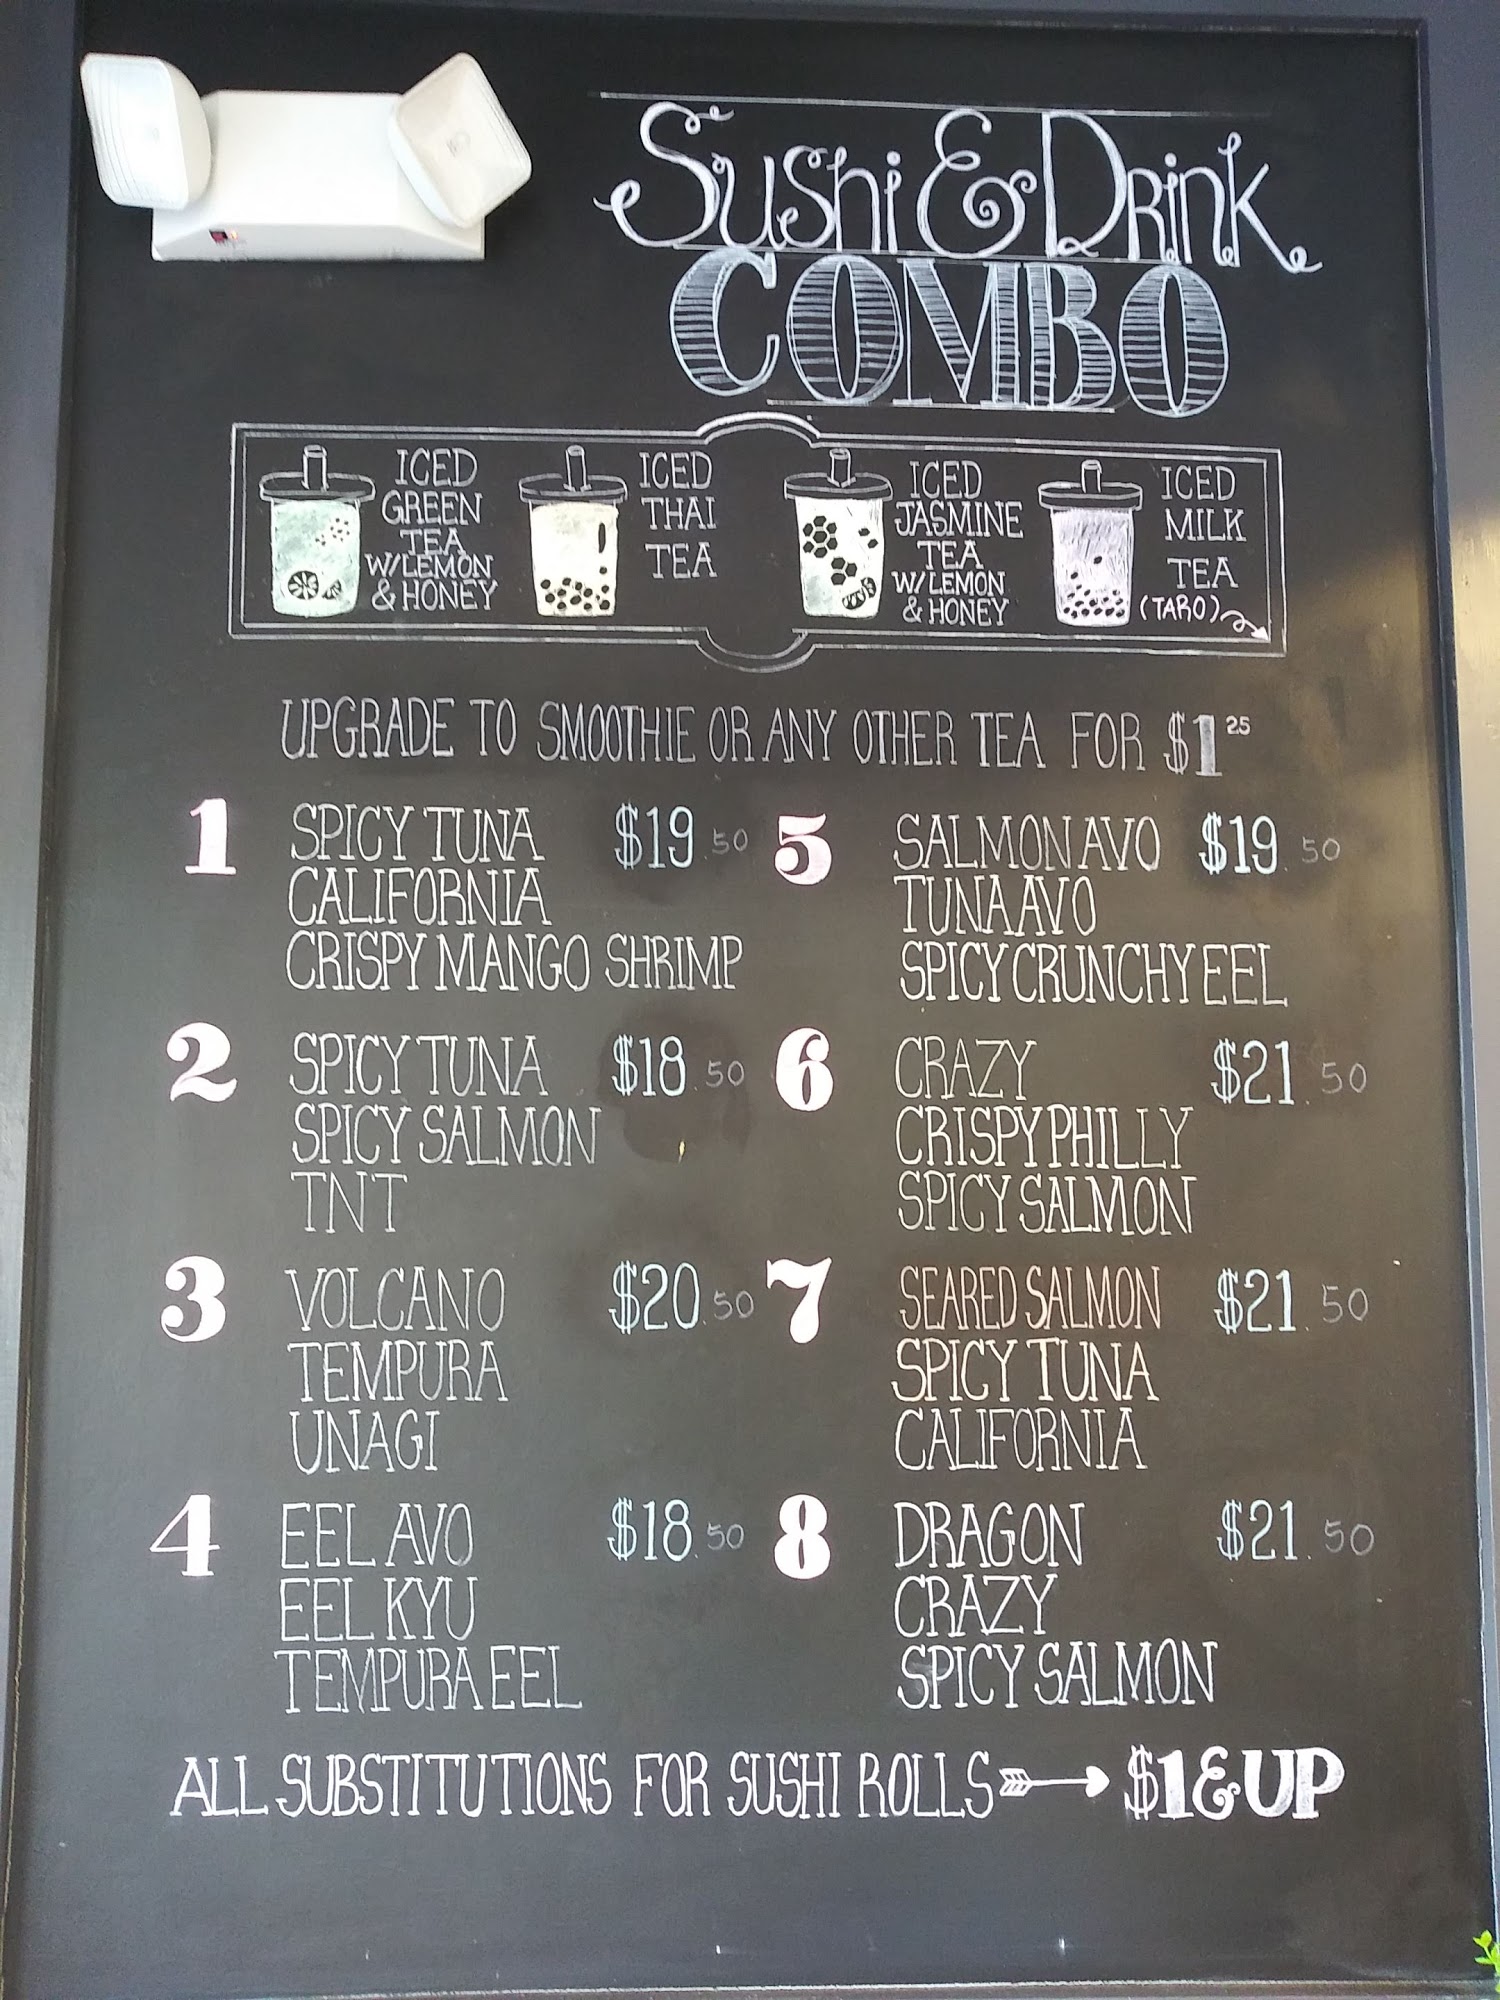 Sushi & Drink
COMBO
ICED
GREEN
TEA
W/LEMON
& HONEY
ICED
THAI
TEA
ICED
JASMINE
TEA
W/LEMON
& HONEY
ICED
MILK
TEA
(TARO)
UPGRADE TO SMOOTHIE OR ANY OTHER TEA FOR $1 25
1 SPICY TUNA $19.50
CALIFORNIA
CRISPY MANGO SHRIMP
2 SPICY TUNA $18.50
SPICY SALMON
TNT
3 VOLCANO $20.50
TEMPURA
UNAGI
4 EEL AVO $18.50
EEL KYU
TEMPURA EEL
5 SALMON AVO $19.50
TUNA AVO
SPICY CRUNCHY EEL
6 CRAZY $21.50
CRISPY PHILLY
SPICY SALMON
7 SEARED SALMON $21.50
SPICY TUNA
CALIFORNIA
8 DRAGON $21.50
CRAZY
SPICY SALMON
ALL SUBSTITUTIONS FOR SUSHI ROLLS $1 & UP